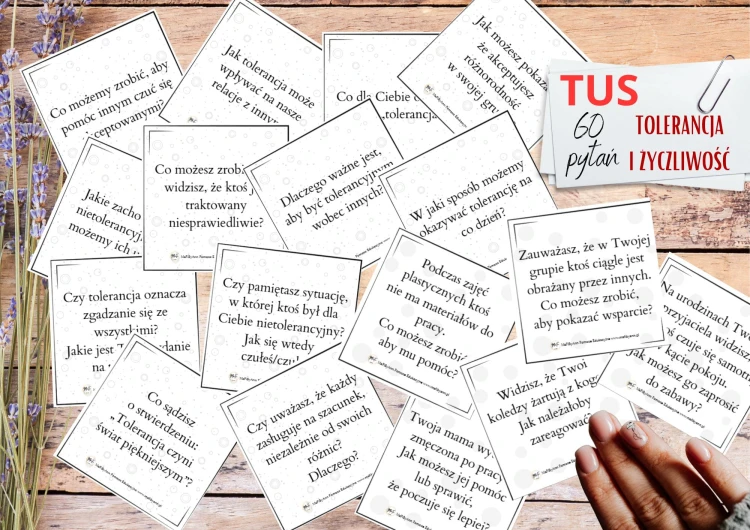 TUS
60
pytań
TOLERANCJA
I ŻYCZLIWOŚĆ
Co możemy zrobić, aby
pomóc innym czuć się
Jak tolerancja może
wpływać na nasze
relacje z innymi
Co dla Ciebie
tolerancja
Jak możesz pokazać
że akceptujesz
różnorodność
w swojej
Jakie
możemy ich
Co możesz zrobić
widzisz, że ktoś
traktowany
niesprawiedliwie?
Dlaczego ważne jest,
aby być tolerancyjnym
wobec innych?
W jaki sposób możemy
okazywać tolerancję na
co dzień?
Zauważasz, że w Twojej
grupie ktoś ciągle jest
obrażany przez innych.
Co możesz zrobić,
aby pokazać wsparcie?
Czy tolerancja oznacza
zgadzanie się ze
wszystkimi?
Jakie jest
na
Czy pamiętasz sytuację,
w której ktoś był dla
Ciebie nietolerancyjny?
Jak się wtedy
Podczas zajęć
plastycznych ktoś
nie ma materiałów do
pracy.
Co możesz zrobić
aby mu pomóc?
Na urodzinach
przyjaciela widzisz,
czuje się
kącie pokoju.
Jak możesz go zaprosić
do zabawy?
Co sądzisz
o stwierdzeniu:
„Tolerancja czyni
świat piękniejszym"?
Czy uważasz, że każdy
zasługuje na szacunek,
niezależnie od swoich
różnic?
Dlaczego?
Twoja mama
zmęczona po pracy
Jak możesz jej pomóc
lub sprawić,
że poczuje się lepiej?
Widzisz, że Twoi
koledzy żartują z
Jak należałoby
zareagować?